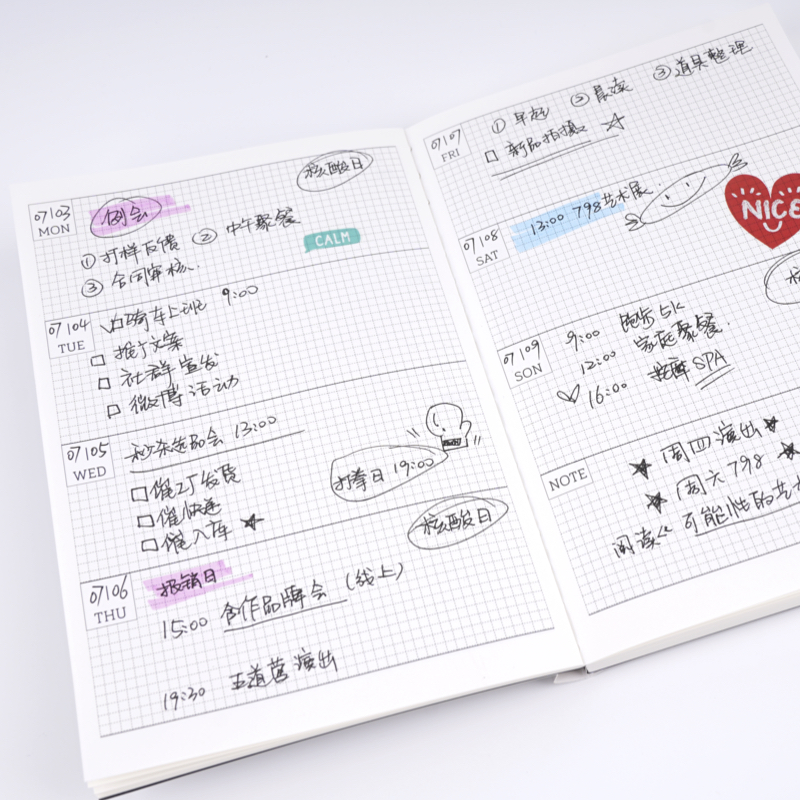 07/03
MON
例会
核酸日
① 打样反馈 ② 中午聚餐
③ 合同审核.
CALM
07/04
TUE
骑车上班 9:00
推广文案
社群宣发
微博活动
07/05
WED
秒杀选品会 13:00
催工厂发货
催快递
催入库
打拳日 19:00
07/06
THU
报销日
核酸日
15:00 合作品牌会 (线上)
19:30 演出
07/07
FRI
① 早起 ② 晨读 ③ 道具整理
新品拍摄
07/08
SAT
13:00 798艺术展.
NICE
07/09
SUN
9:00 跑步5K
12:00 家庭聚餐.
16:00 按摩SPA
NOTE
周四演出
周六798
阅读《可能性的艺